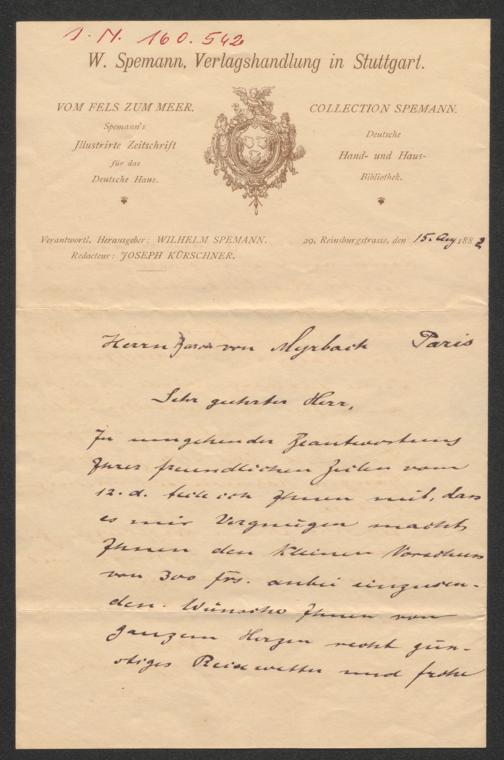 J. N. 160.542
W. Spemann, Verlagshandlung in Stuttgart.
VOM FELS ZUM MEER.
Spemann's
Jllustrirte Zeitschrift
für das
Deutsche Haus.
COLLECTION SPEMANN.
Deutsche
Hand- und Haus-
Bibliothek.
Verantwortl. Herausgeber: WILHELM SPEMANN.
Redacteur: JOSEPH KÜRSCHNER.
29. Reinsburgstrasse, den 15. Aug 1882
Herrn Baron von Myrbach Paris
Sehr geehrter Herr,
In umgehender Beantwortung
Ihres freundlichen Zeilen vom
12. d. teile ich Ihnen mit, dass
es mir Vergnügen macht
Ihnen den kleinen Vorschuss
von 300 frs. anbei einzusen-
den. Wünsche Ihnen von
ganzem Herzen recht gün-
stiges Reisewetter und frohe